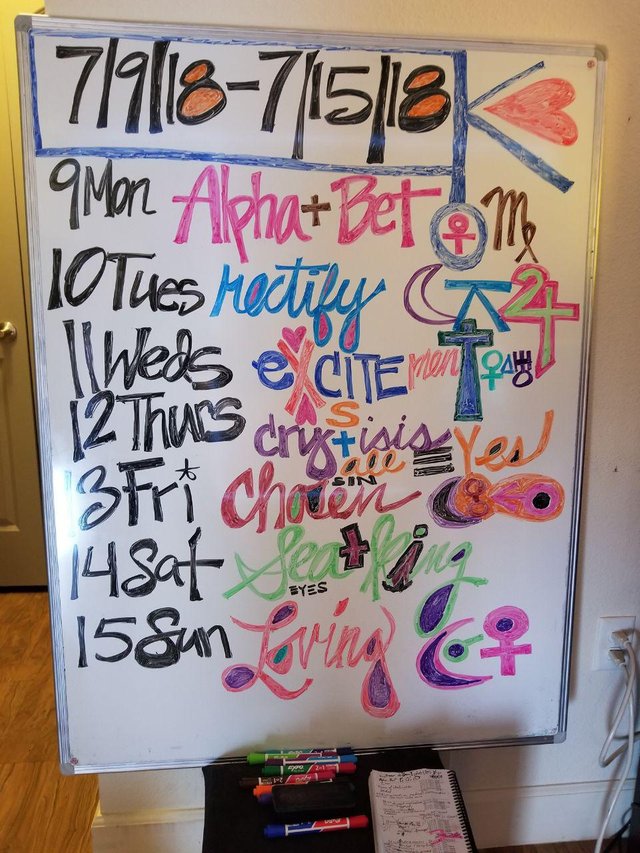 7/9/18-7/15/18
9 Mon Alpha + Bet ♀ ♍
10 Tues rectify ♃
11 Weds eXCITEmenT ♀
12 Thurs cry+isis ≡ Yes
S
all
SIN
13 Fri Chosen
14 Sat Sea+King
EYES
15 Sun Loving ♀